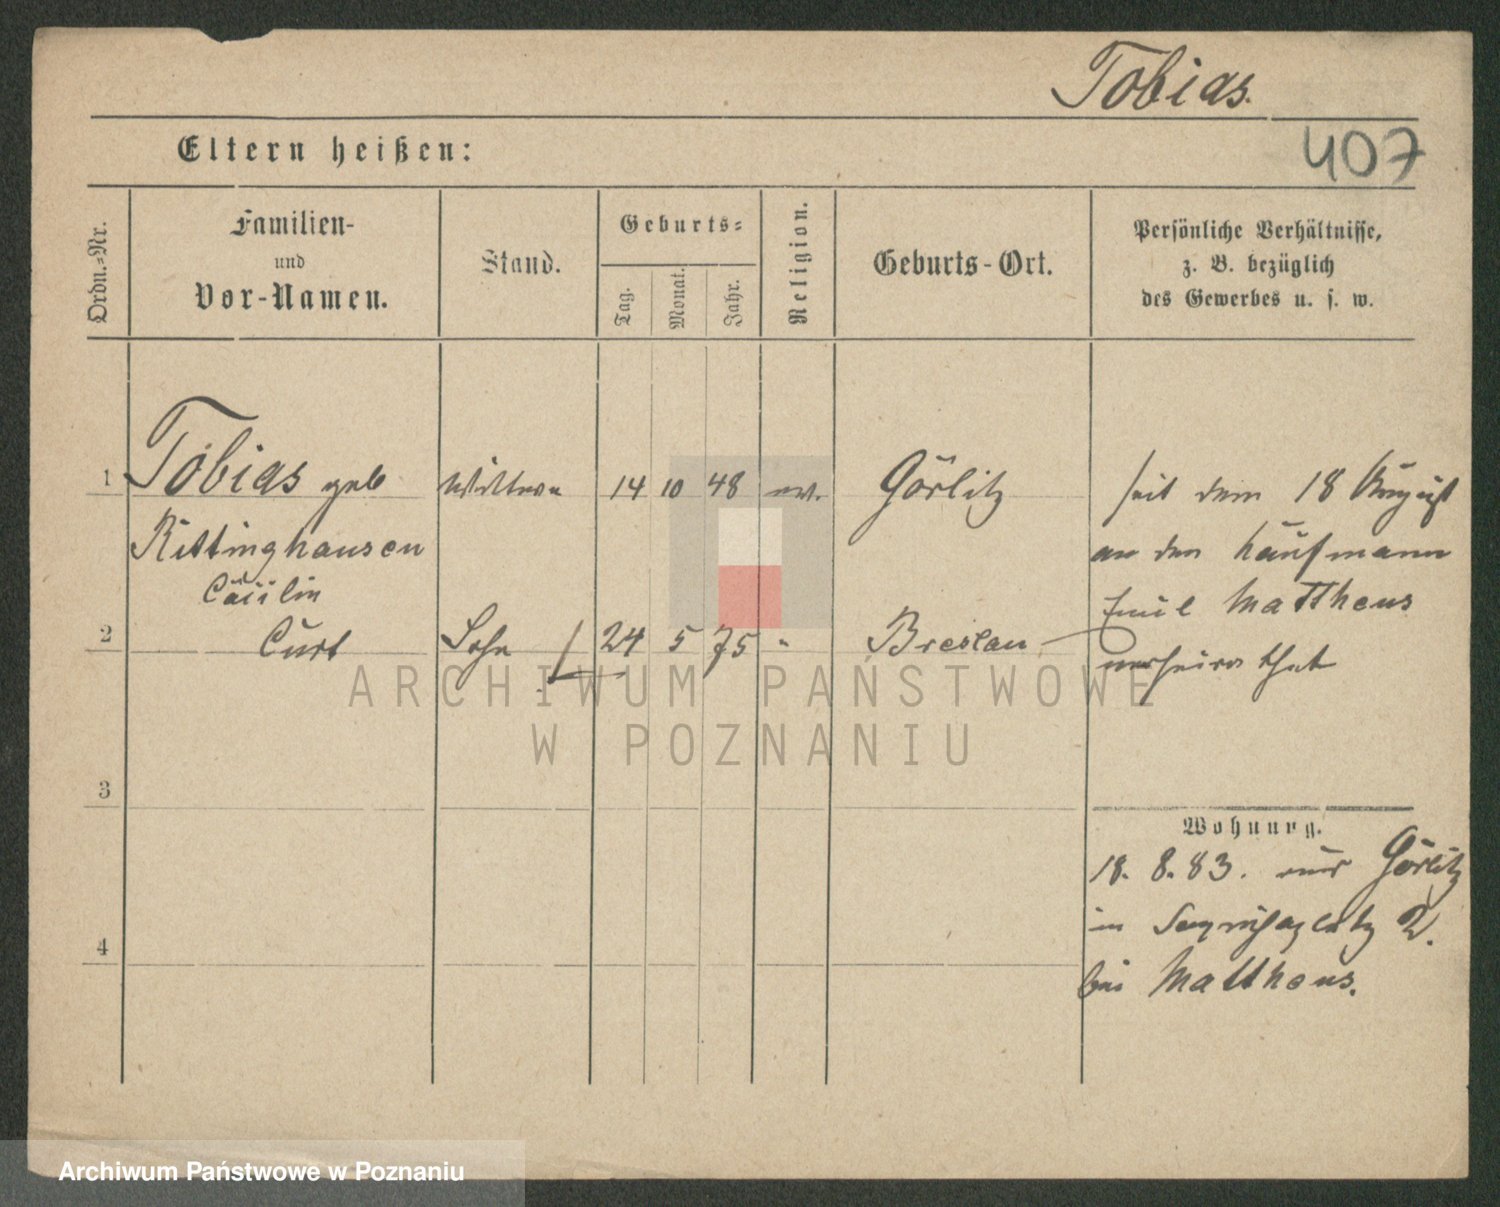 Tobias.
407
Eltern heißen:
Ordn.-Nr.
Familien-
und
Vor-Namen.
Stand.
Geburts-
Tag.
Monat.
Jahr.
Religion.
Geburts-Ort.
Persönliche Verhältnisse,
z. B. bezüglich
des Gewerbes u. s. w.
1 Tobias geb Wittwe 14 10 48 ev. Görlitz
Rittinghausen
Cäcilie
2 Curt Sohn 24 5 75 " Breslau
seit dem 18 August
an den Kaufmann
Emil Mattheus
verheirathet
3
4
Wohnung.
18. 8. 83. aus Görlitz
in 2.
bei Mattheus.
ARCHIWUM PAŃSTWOWE
W POZNANIU
Archiwum Państwowe w Poznaniu